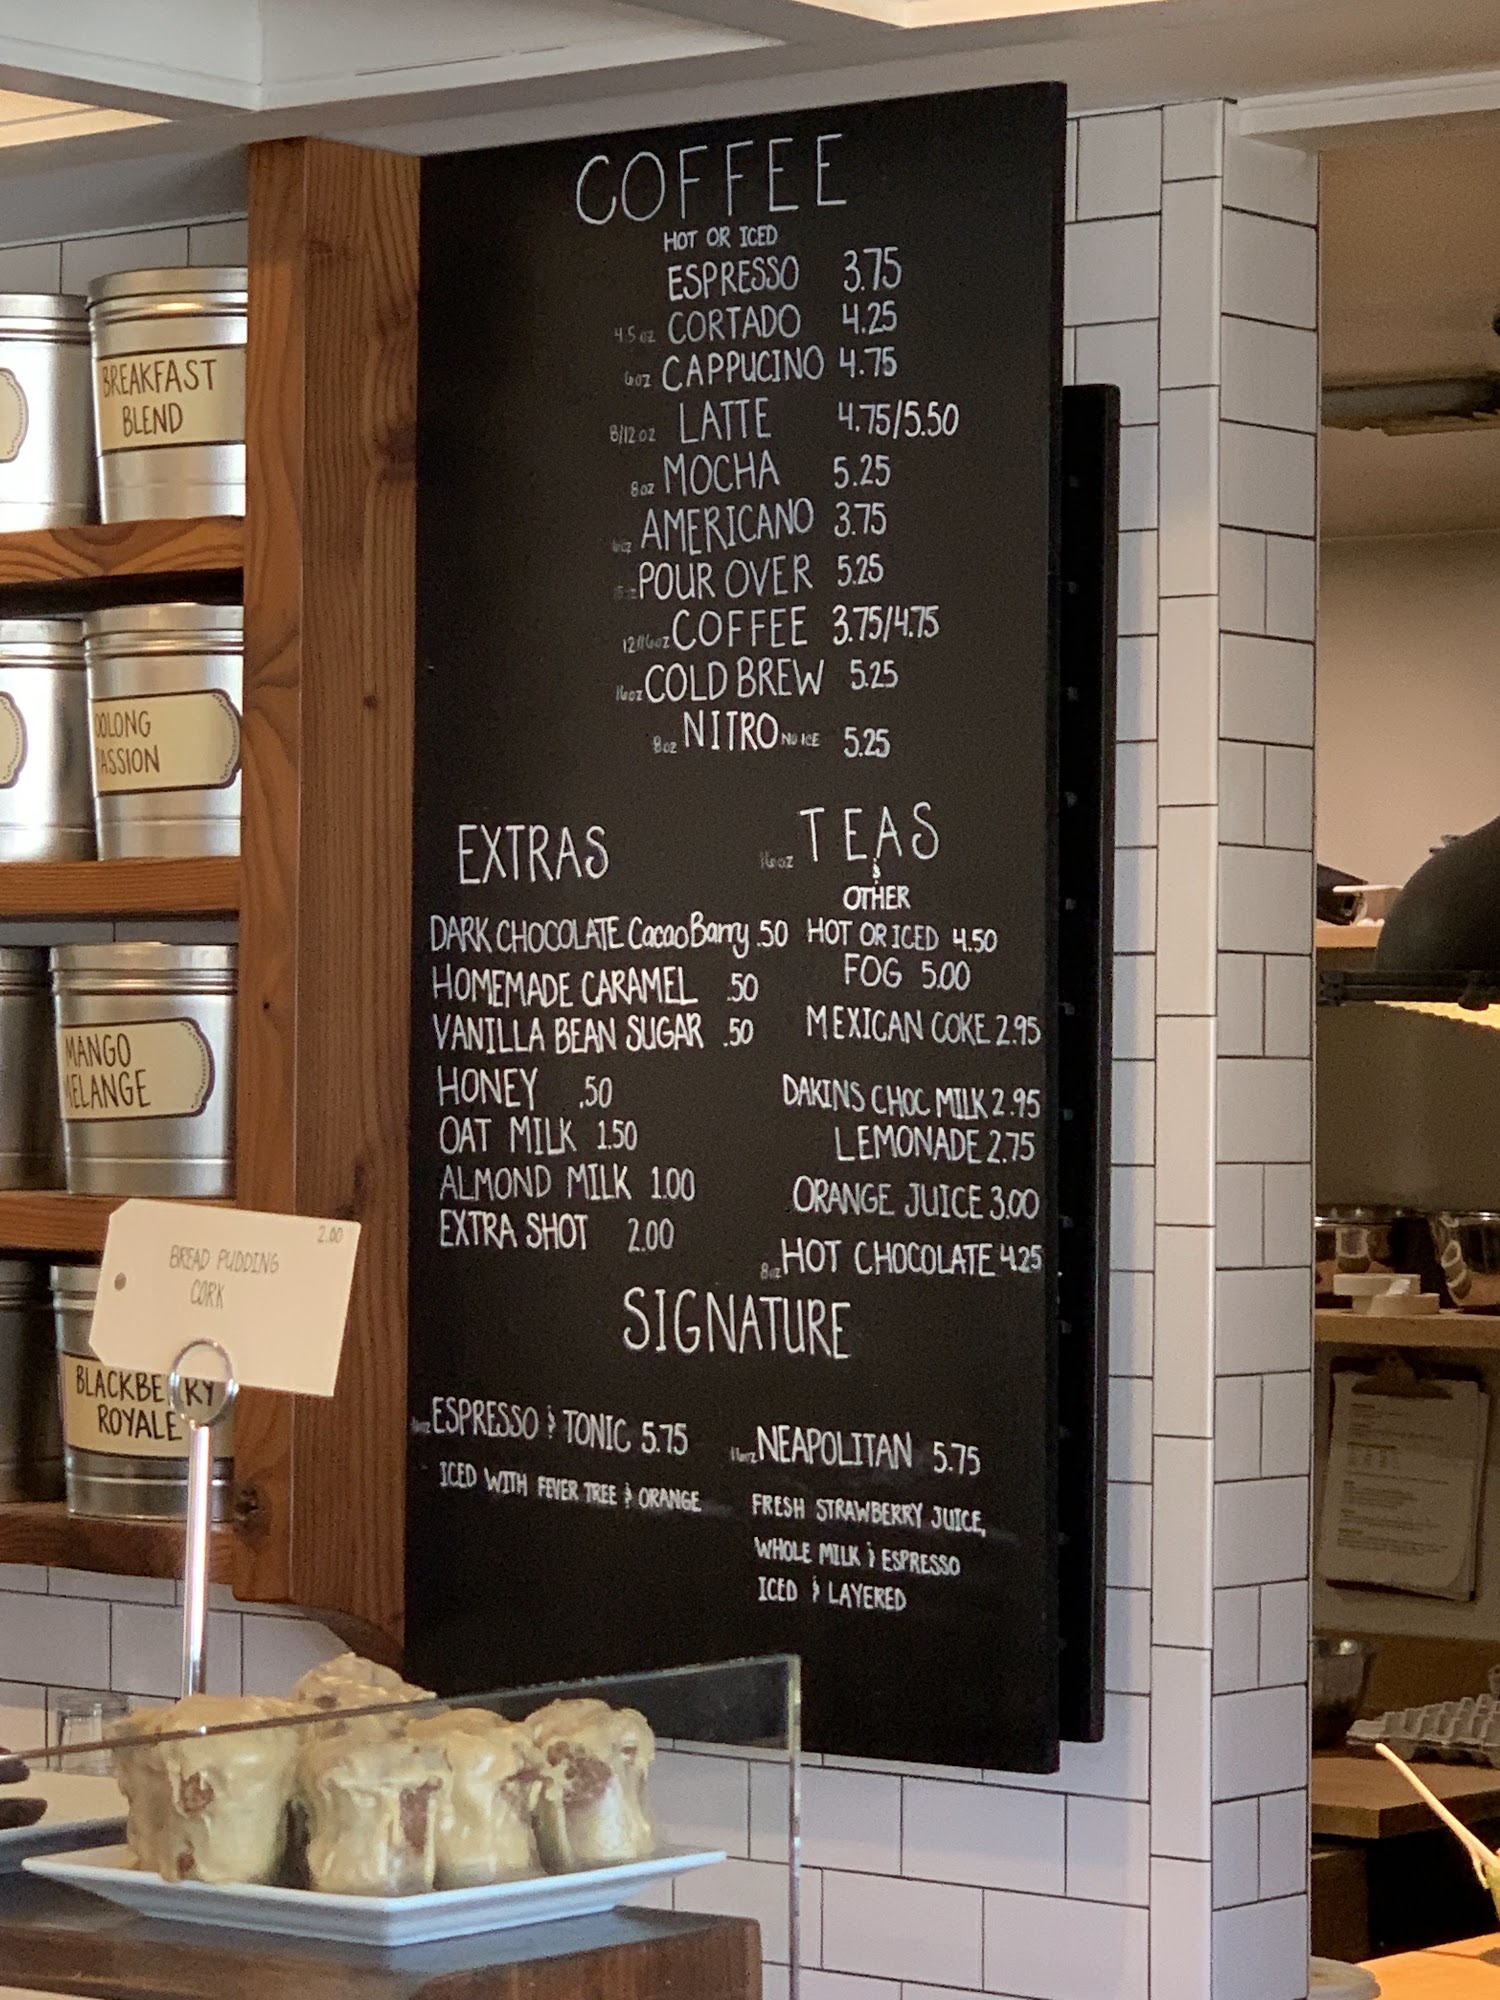 COFFEE
HOT OR ICED
ESPRESSO 3.75
4.5oz CORTADO 4.25
6oz CAPPUCINO 4.75
8/12oz LATTE 4.75/5.50
8oz MOCHA 5.25
AMERICANO 3.75
POUR OVER 5.25
12/16oz COFFEE 3.75/4.75
16oz COLD BREW 5.25
8oz NITRO NO ICE 5.25
EXTRAS
DARK CHOCOLATE Cacao Barry .50
HOMEMADE CARAMEL .50
VANILLA BEAN SUGAR .50
HONEY .50
OAT MILK 1.50
ALMOND MILK 1.00
EXTRA SHOT 2.00
16oz TEAS
&
OTHER
HOT OR ICED 4.50
FOG 5.00
MEXICAN COKE 2.95
DAKINS CHOC MILK 2.95
LEMONADE 2.75
ORANGE JUICE 3.00
8oz HOT CHOCOLATE 4.25
SIGNATURE
ESPRESSO & TONIC 5.75
ICED WITH FEVER TREE & ORANGE
16oz NEAPOLITAN 5.75
FRESH STRAWBERRY JUICE,
WHOLE MILK & ESPRESSO
ICED & LAYERED
BREAKFAST
BLEND
OOLONG
PASSION
MANGO
MELANGE
BLACKBERRY
ROYALE
2.00
BREAD PUDDING
CORK